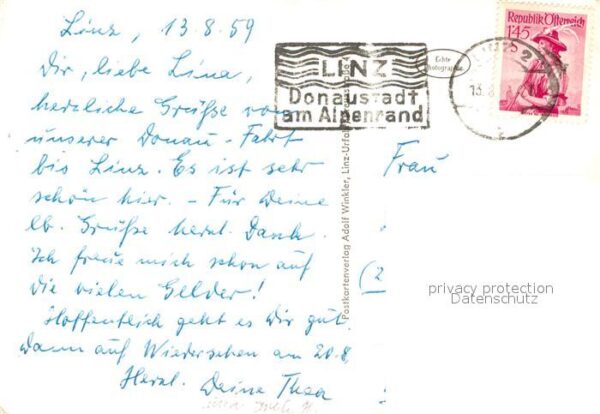 Linz, 13.8.59
Dir, liebe Lina,
herzliche Grüße von
unserer Donau-Fahrt
bis Linz. Es ist sehr
schön hier. - Für Deine
lb. Grüße herzl. Dank.
Ich freue mich schon auf
die vielen Gelder!
Hoffentlich geht es Dir gut.
Dann auf Wiedersehen am 20.8.
Herzl. Deine Thea
LINZ
Donaustadt
am Alpenrand
Echte
Photographie
Republik Österreich
1·45
S
LINZ 2
13.8.
Postkartenverlag Adolf Winkler, Linz-Urfahr
Frau
(2
privacy protection
Datenschutz